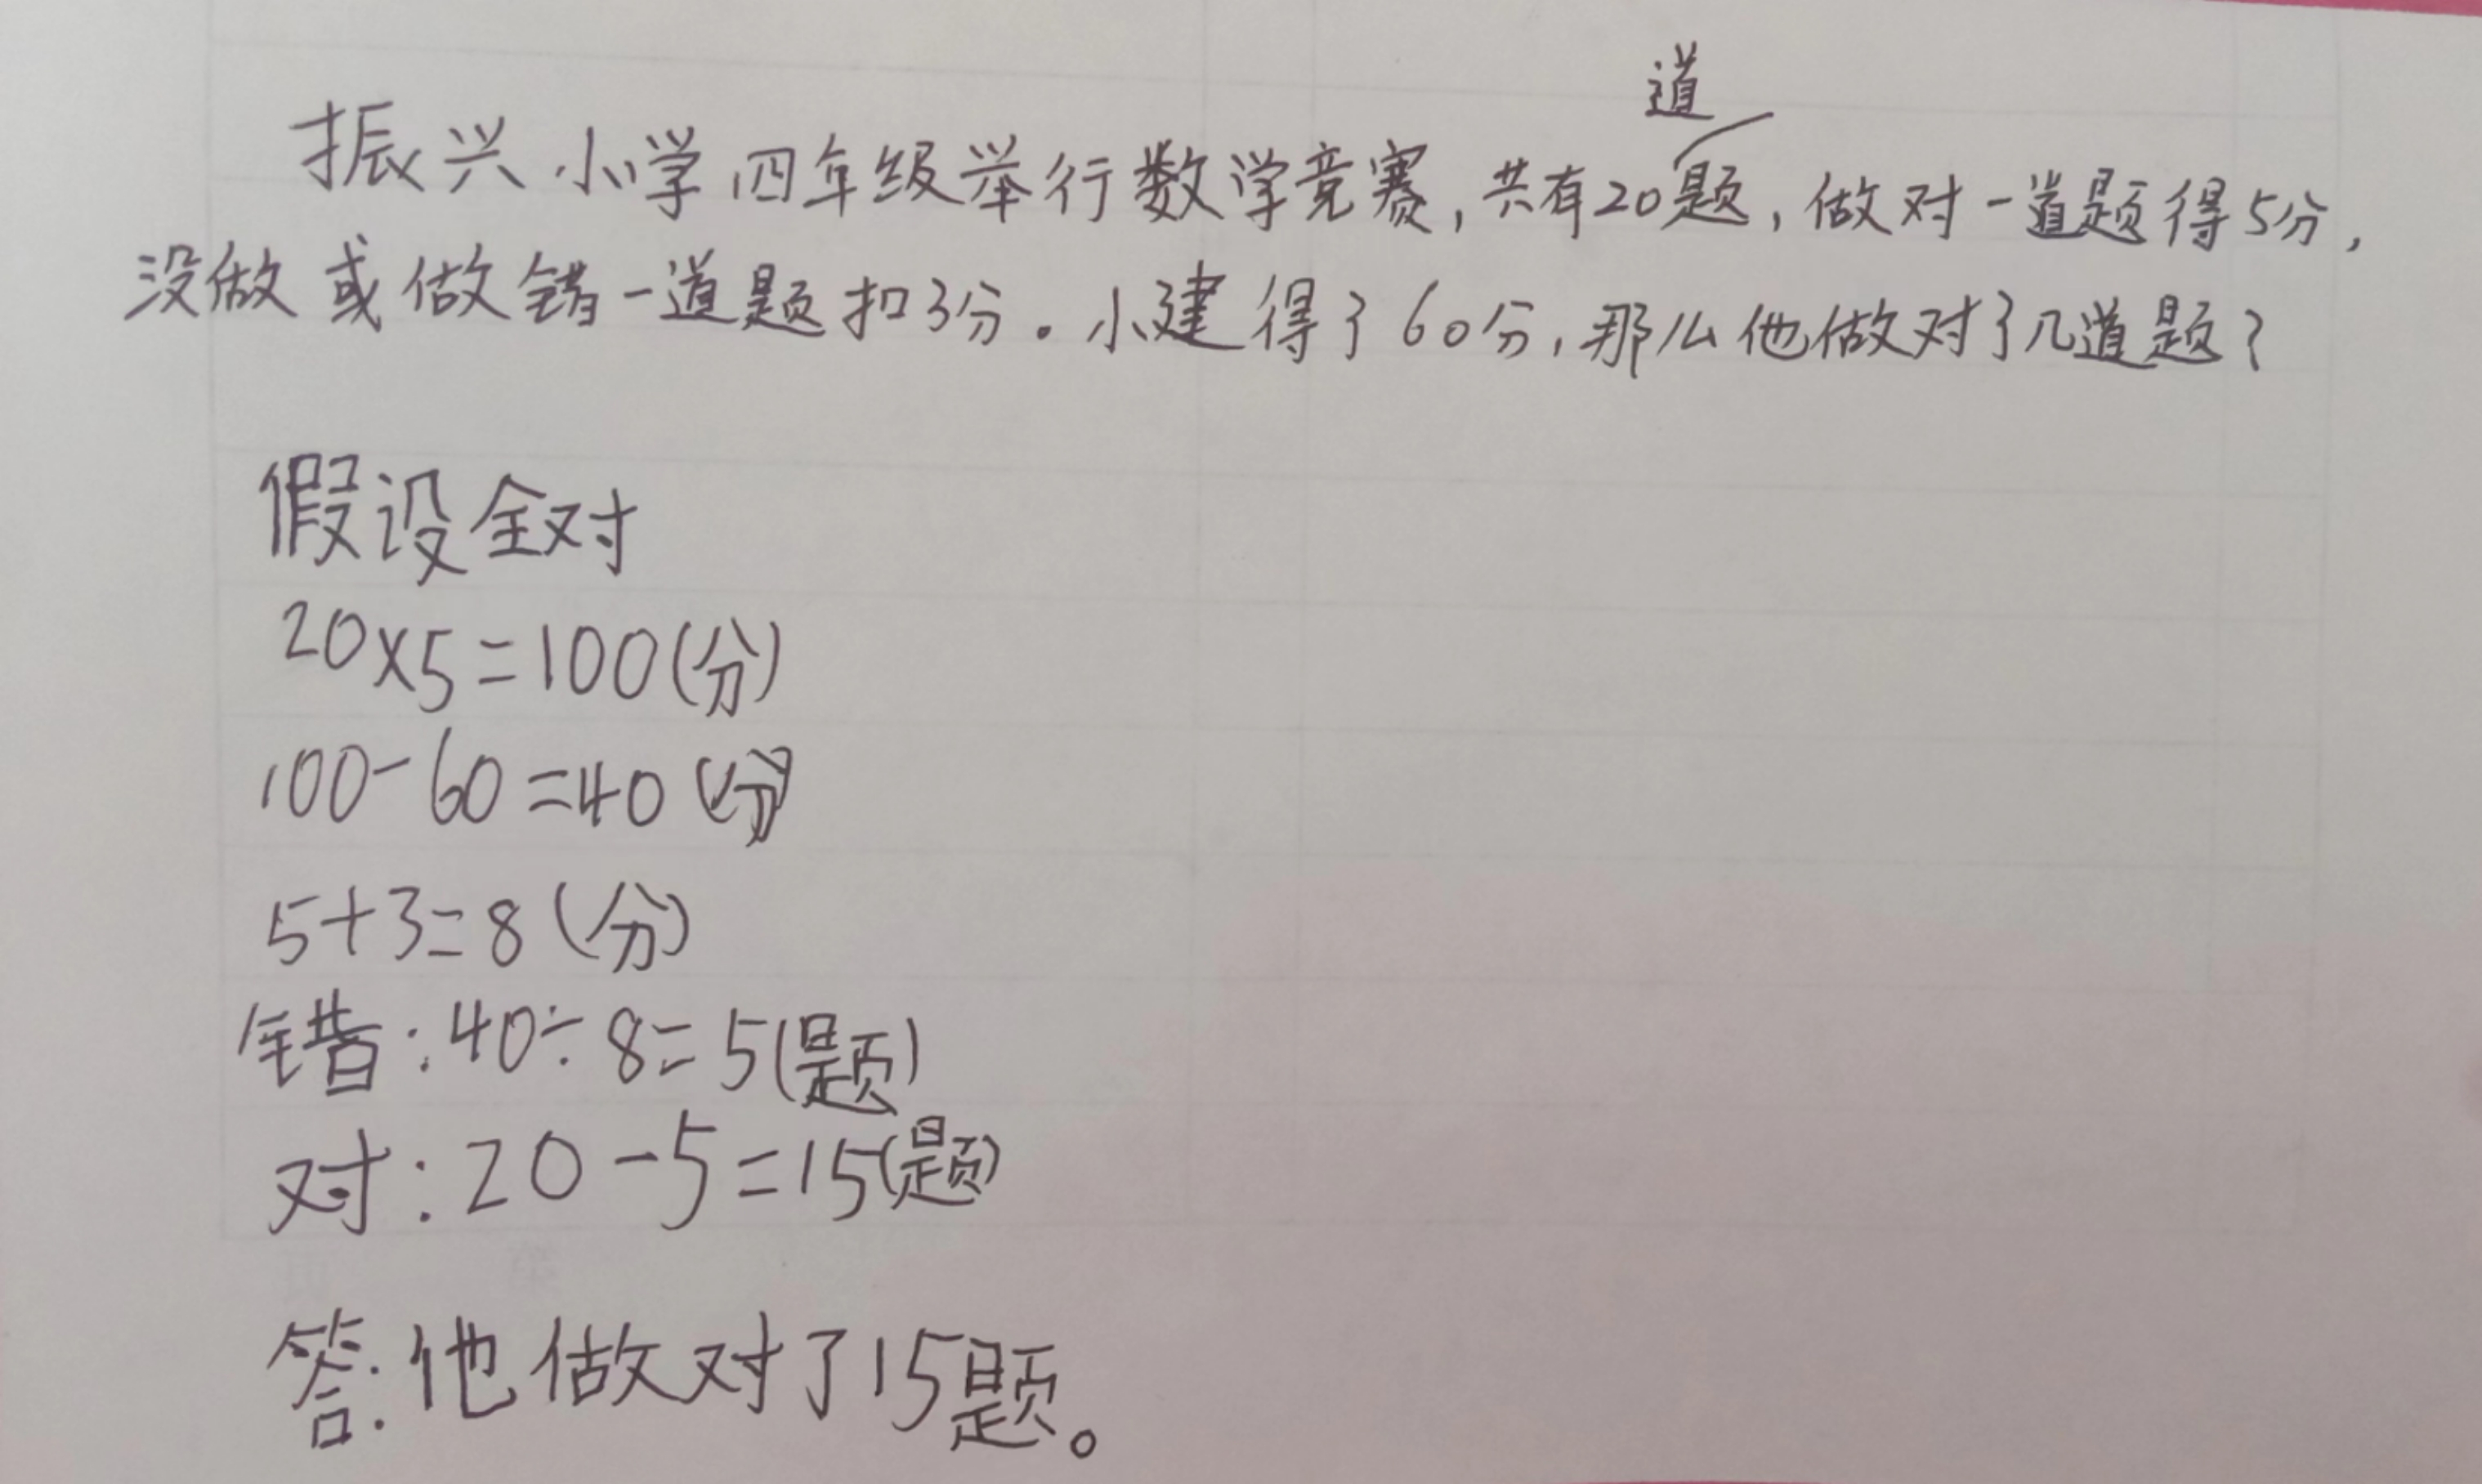 振兴小学四年级举行数学竞赛,共有20道题,做对一道题得5分,
没做或做错一道题扣3分。小建得了60分,那么他做对了几道题?
假设全对
20×5=100(分)
100-60=40(分)
5+3=8(分)
错:40÷8=5(题)
对:20-5=15(题)
答:他做对了15题。